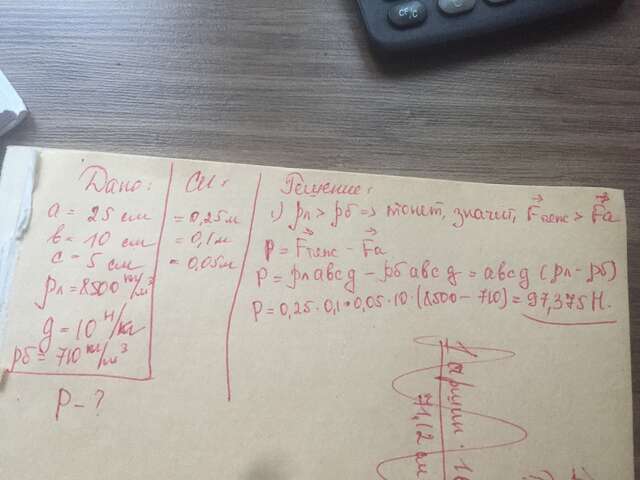 Дано:
a = 25 см
b = 10 см
c = 5 см
ρл = 8500 кг/м³
g = 10 Н/кг
ρб = 710 кг/м³
P - ?
Си:
= 0,25 м
= 0,1 м
= 0,05 м
Решение:
1) ρл > ρб => тонет, значит, Fтяж > Fa
P = Fтяж - Fa
P = ρл abcg - ρб abcg = abcg (ρл - ρб)
P = 0,25 · 0,1 · 0,05 · 10 · (8500 - 710) = 97,375 Н.